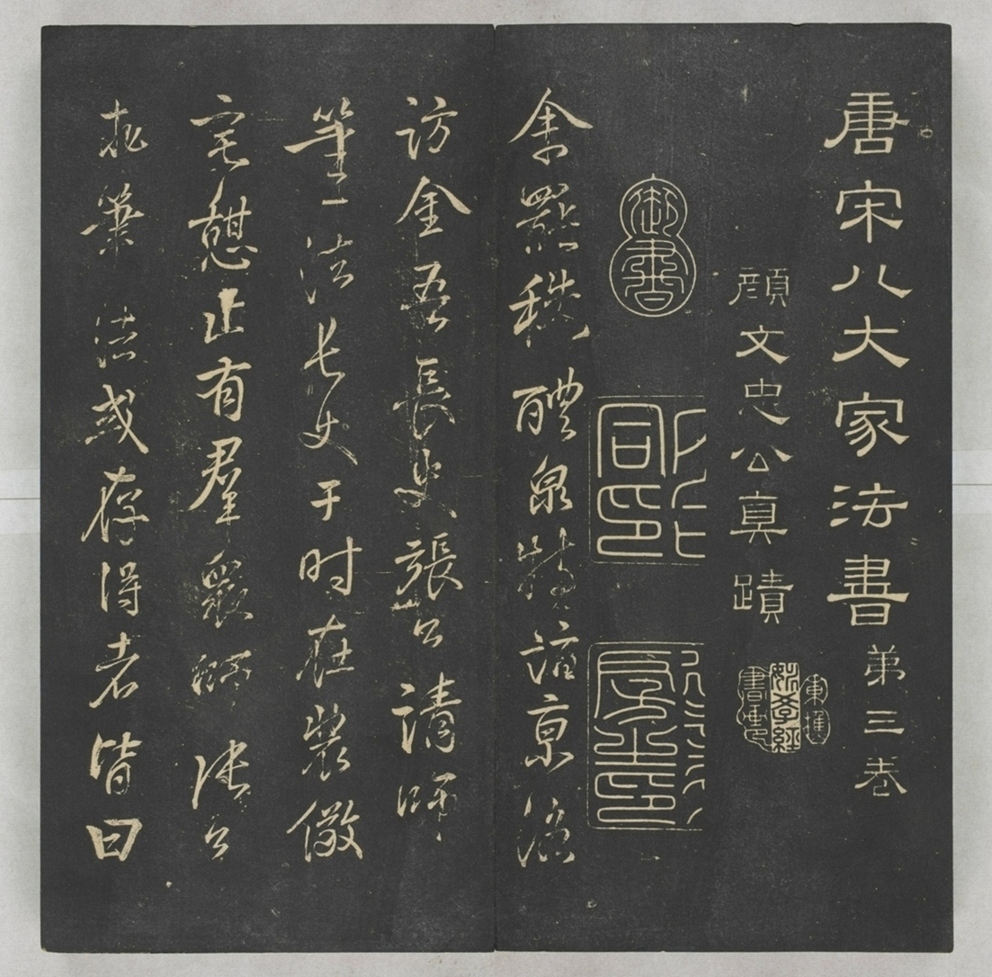 唐宋八大家法書第三卷
顔文忠公真蹟
御書
余罷秩醴泉特詣京洛
訪金吾長史張公請師
筆法長史于时在裴儆
宅憩止有羣衆师张公
求筆法或存得者皆曰